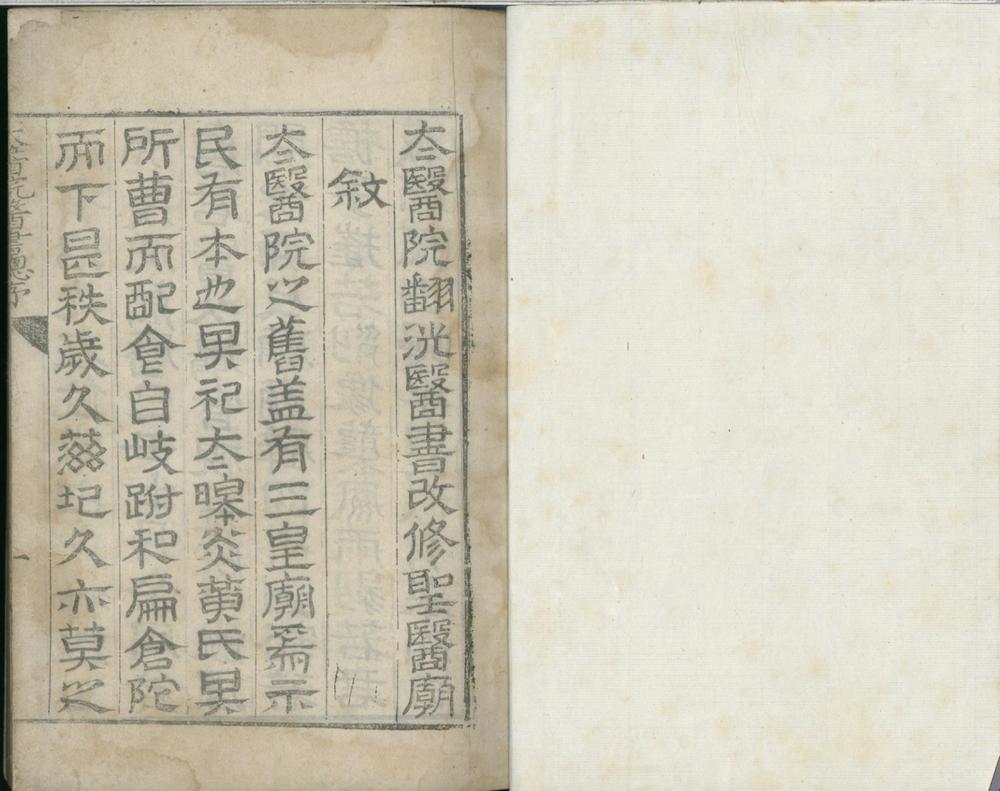 太醫院翻洗醫書改修聖醫廟
敘
太醫院之舊盖有三皇廟焉示
民有本也其祀太暤炎黄氏其
所曹而配食自岐跗和扁倉陀
而下甚秩歲久玆圮久亦莫之
太醫院醫書總序
一